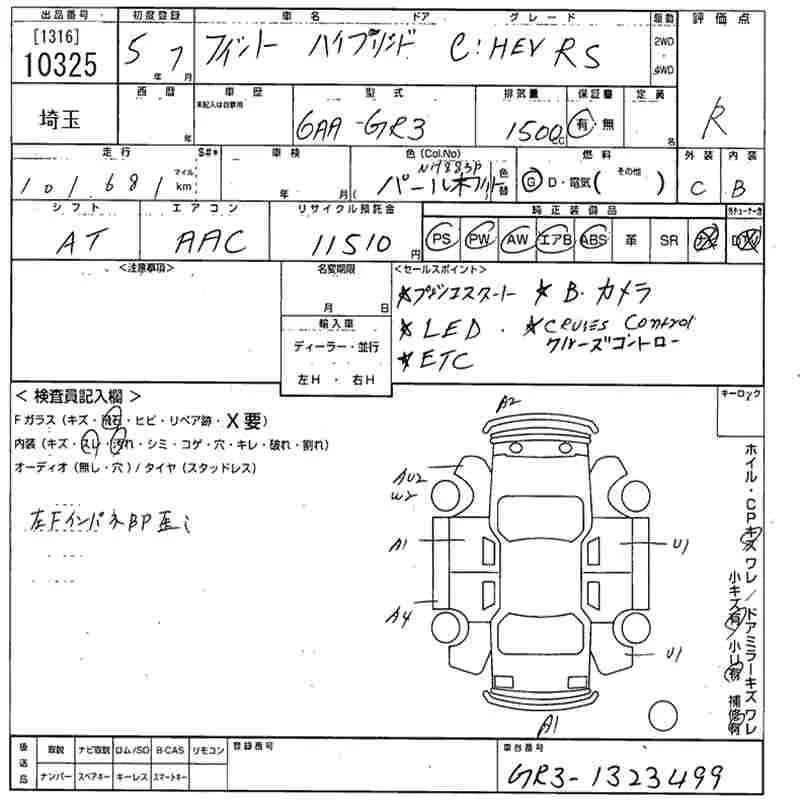 出品番号 初度登録 車名 ドア グレード 駆動 評価点
[1316]
10325 5年 7月 フィット ハイブリッド e:HEV RS 2WD 4WD R
埼玉 西暦 年 車歴 未記入は自家用 型式 6AA-GR3 排気量 1500cc 保証書 有・無 定員 名
走行 101,681 マイル km $#* 車検 年 月 色 (Col.No) 色替 燃料 G D・電気( その他 ) 外装 C 内装 B
シフト エアコン リサイクル預託金 純正装備品
AT AAC 11510円 PS PW AW エアB ABS 革 SR
<注意事項> 名変期限 月 日 <セールスポイント>
輸入車
ディーラー・並行
左H ・ 右H
★プッシュスタート ★B.カメラ
★LED . ★CRUIES Control
クルーズコントロー
★ETC
キーロック
< 検査員記入欄 >
Fガラス (キズ・飛石・ヒビ・リペア跡・X要)
内装 (キズ・スレ・汚れ・シミ・コゲ・穴・キレ・破れ・割れ)
オーディオ (無し・穴) / タイヤ (スタッドレス)
左Fインパネ
A2
AU2
W2
A1
U1
A4
U1
A1
ホイル・CPキズ ワレ / ドアミラーキズ ワレ
小キズ有 / 小凹有 補修有
後送品 取説 ナビ取説 ロム/SD B-CAS リモコン 登録番号 車台番号
ナンバー スペアキー キーレス スマートキー GR3-1323499